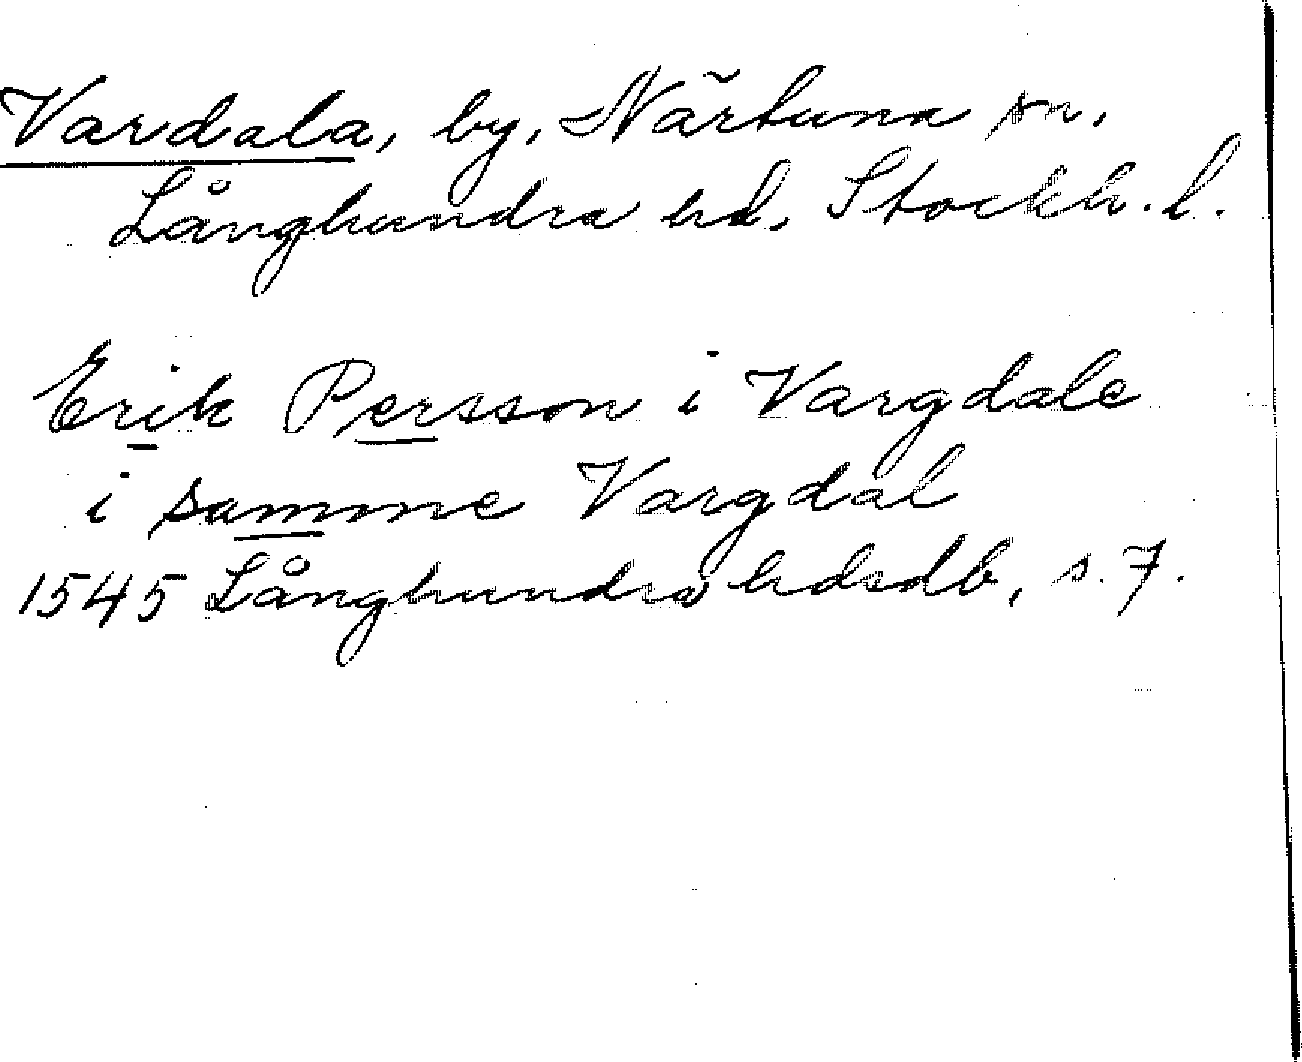 Vardala, by, Närtuna sn.
Långhundra hd. Stockh. l.
Erik Persson i Vargdale
i samme Vargdal
1545 Långhundra hdsdb, s. 7.